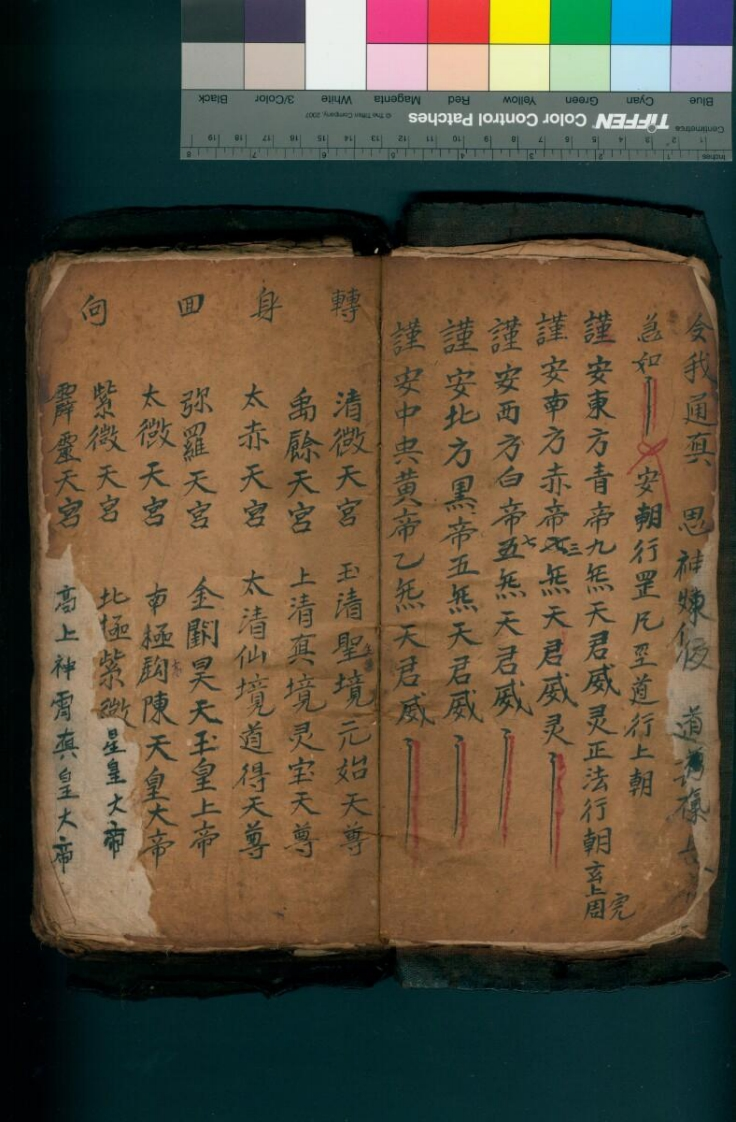 令我通真 思神煉 道
急如 安朝行罡凡至道行上朝
謹安東方青帝九炁天君威灵正法行朝玄上周完
謹安南方赤帝三炁天君威灵
謹安西方白帝七炁天君威
謹安北方黑帝五炁天君威
謹安中央黄帝乙炁天君威
轉身回向
清微天宮 玉清聖境元始天尊
禹餘天宮 上清真境灵宝天尊
太赤天宮 太清仙境道得天尊
弥羅天宮 金闕昊天玉皇上帝
太微天宮 南極鈎陳天皇大帝
紫微天宮 北極紫微星皇大帝
霹靈天宮 高上神霄真皇大帝
Blue Cyan Green Yellow Red Magenta White 3/Color Black
TIFFEN Color Control Patches © The Tiffen Company, 2007
Centimetres 1 2 3 4 5 6 7 8 9 10 11 12 13 14 15 16 17 18 19
Inches 1 2 3 4 5 6 7 8